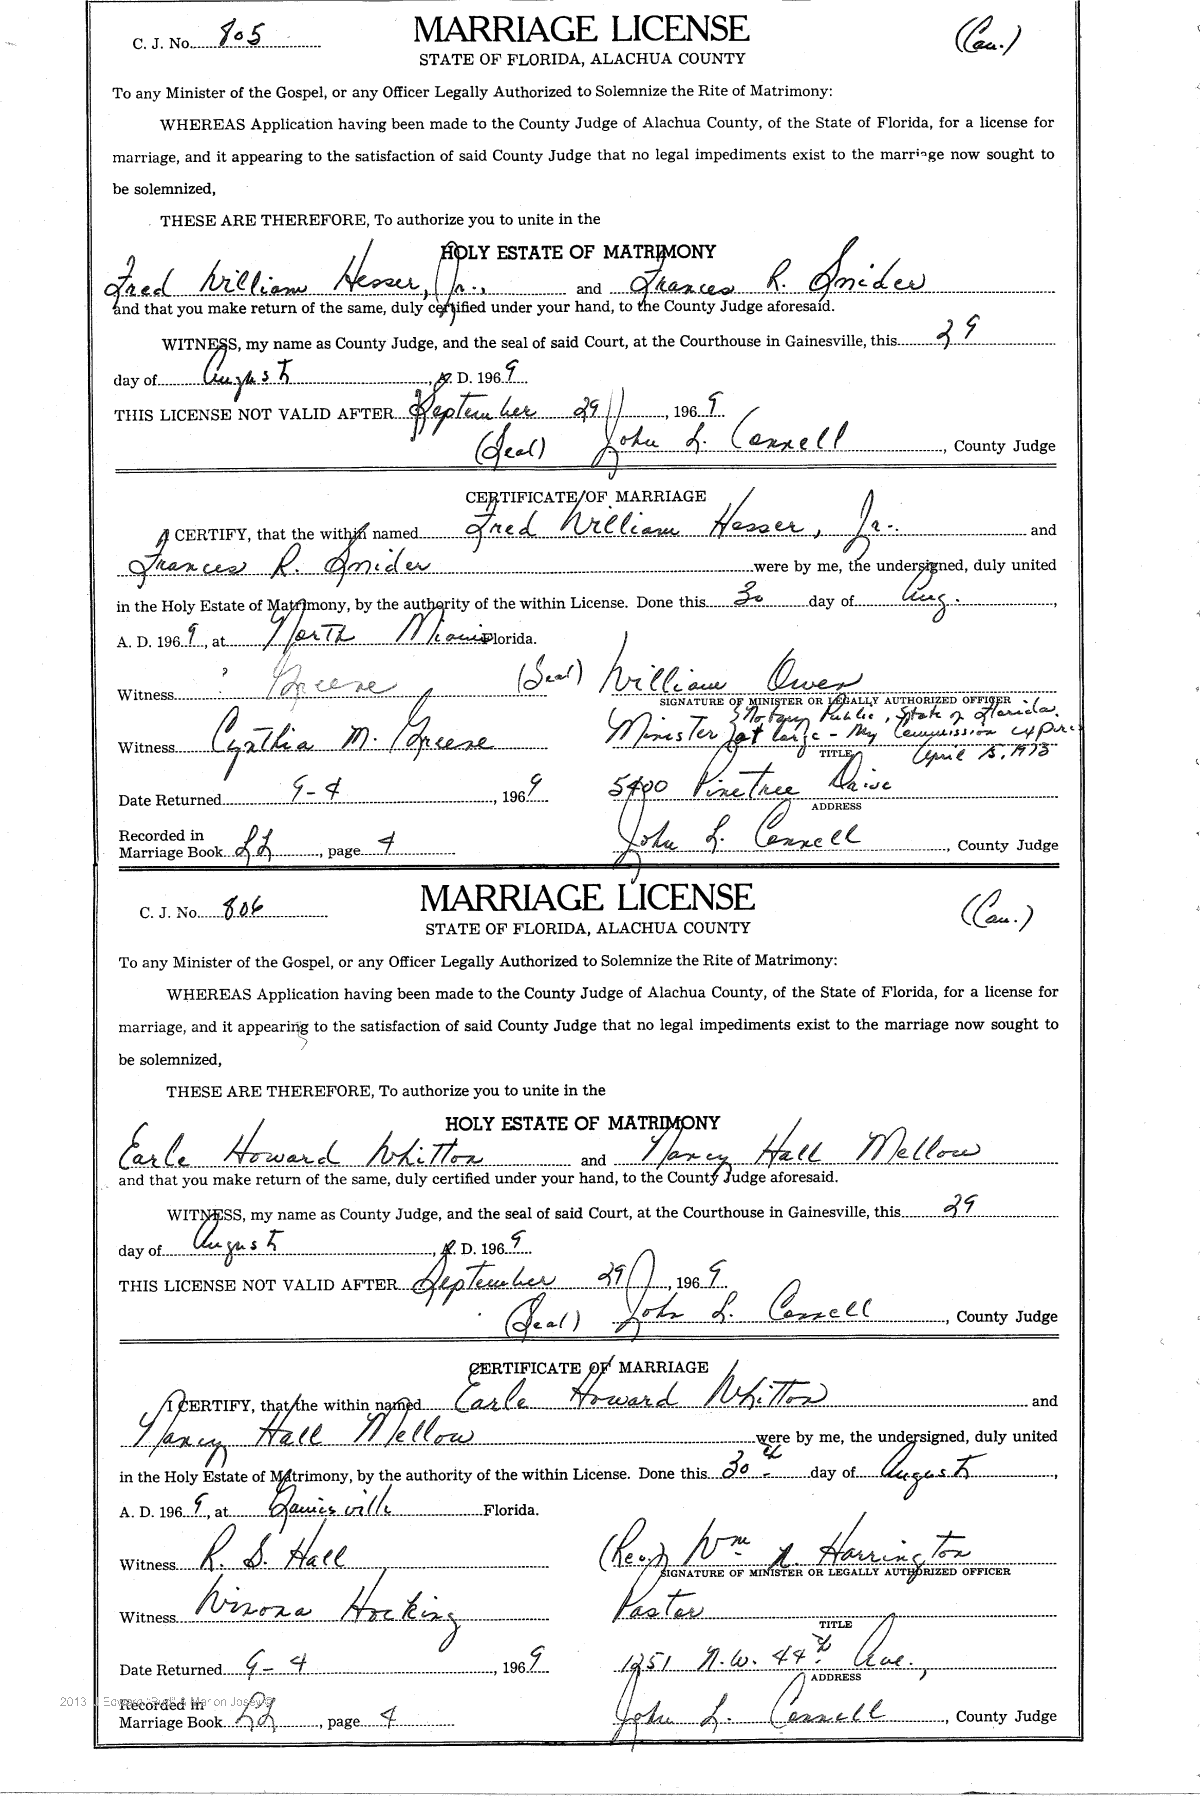 C. J. No. 805 MARRIAGE LICENSE (Cau.)
STATE OF FLORIDA, ALACHUA COUNTY
To any Minister of the Gospel, or any Officer Legally Authorized to Solemnize the Rite of Matrimony:
WHEREAS Application having been made to the County Judge of Alachua County, of the State of Florida, for a license for
marriage, and it appearing to the satisfaction of said County Judge that no legal impediments exist to the marriage now sought to
be solemnized,
THESE ARE THEREFORE, To authorize you to unite in the
HOLY ESTATE OF MATRIMONY
Fred William Hesser, Jr., and Frances R. Snider
and that you make return of the same, duly certified under your hand, to the County Judge aforesaid.
WITNESS, my name as County Judge, and the seal of said Court, at the Courthouse in Gainesville, this 29
day of August, A. D. 1969
THIS LICENSE NOT VALID AFTER September 29, 1969
(Seal) John L. Connell, County Judge
CERTIFICATE OF MARRIAGE
I CERTIFY, that the within named Fred William Hesser, Jr. and
Frances R. Snider were by me, the undersigned, duly united
in the Holy Estate of Matrimony, by the authority of the within License. Done this 30 day of Aug.,
A. D. 1969, at North Miami Florida.
Witness ? Greene (Seal) William Owen
SIGNATURE OF MINISTER OR LEGALLY AUTHORIZED OFFICER
Witness Cynthia M. Greene Minister & Notary Public, State of Florida at large - My Commission expires April 15, 1973
TITLE
Date Returned 9-4, 1969 5400 Pinetree Drive
ADDRESS
Recorded in
Marriage Book LL, page 4 John L. Connell, County Judge
C. J. No. 806 MARRIAGE LICENSE (Cau.)
STATE OF FLORIDA, ALACHUA COUNTY
To any Minister of the Gospel, or any Officer Legally Authorized to Solemnize the Rite of Matrimony:
WHEREAS Application having been made to the County Judge of Alachua County, of the State of Florida, for a license for
marriage, and it appearing to the satisfaction of said County Judge that no legal impediments exist to the marriage now sought to
be solemnized,
THESE ARE THEREFORE, To authorize you to unite in the
HOLY ESTATE OF MATRIMONY
Earle Howard Whitton and Nancy Hall Mellow
and that you make return of the same, duly certified under your hand, to the County Judge aforesaid.
WITNESS, my name as County Judge, and the seal of said Court, at the Courthouse in Gainesville, this 29
day of August, A. D. 1969
THIS LICENSE NOT VALID AFTER September 29, 1969
(Seal) John L. Connell, County Judge
CERTIFICATE OF MARRIAGE
I CERTIFY, that the within named Earle Howard Whitton and
Nancy Hall Mellow were by me, the undersigned, duly united
in the Holy Estate of Matrimony, by the authority of the within License. Done this 30th day of August,
A. D. 1969, at Gainesville Florida.
Witness R. S. Hall (Rev.) Wm. R. Harrington
SIGNATURE OF MINISTER OR LEGALLY AUTHORIZED OFFICER
Witness Winona Hocking Pastor
TITLE
Date Returned 9-4, 1969 1251 N.W. 44th Ave.,
ADDRESS
2013
Recorded in
Marriage Book LL, page 4 John L. Connell, County Judge